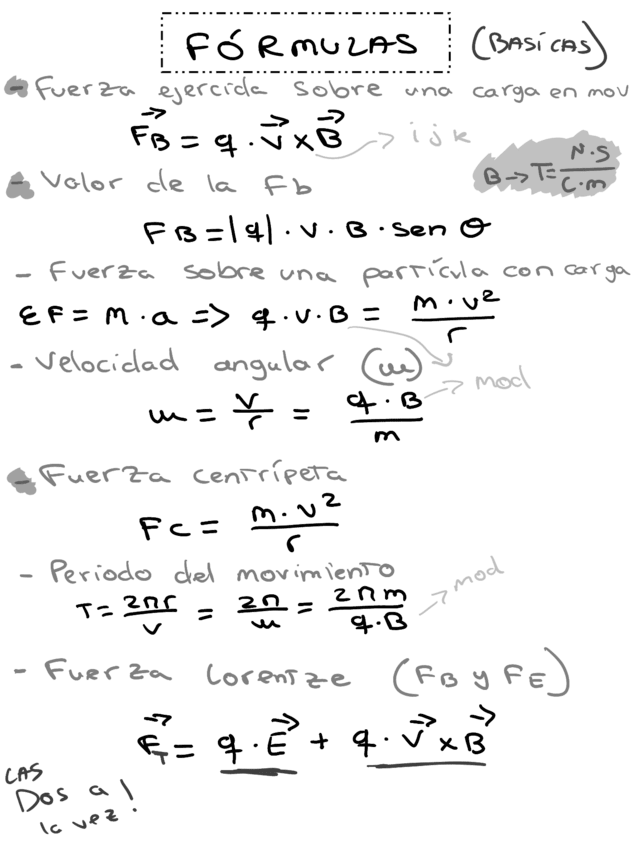 FÓRMULAS (BASICAS)
- Fuerza ejercida sobre una carga en mov
F⃗B = q · V⃗ x B⃗ → i j k
B → T = N·S / C·m
- Valor de la Fb
FB = |q| · v · B · sen θ
- Fuerza sobre una partícula con carga
ΣF = m · a => q · v · B = m · v² / r
- Velocidad angular (ω)
ω = v / r = q · B / m → mod
- Fuerza centrípeta
Fc = m · v² / r
- Periodo del movimiento
T = 2πr / v = 2π / ω = 2πm / q·B → mod
- Fuerza Lorentze (FB y FE)
F⃗T = q · E⃗ + q · V⃗ x B⃗
LAS
Dos a
la vez!